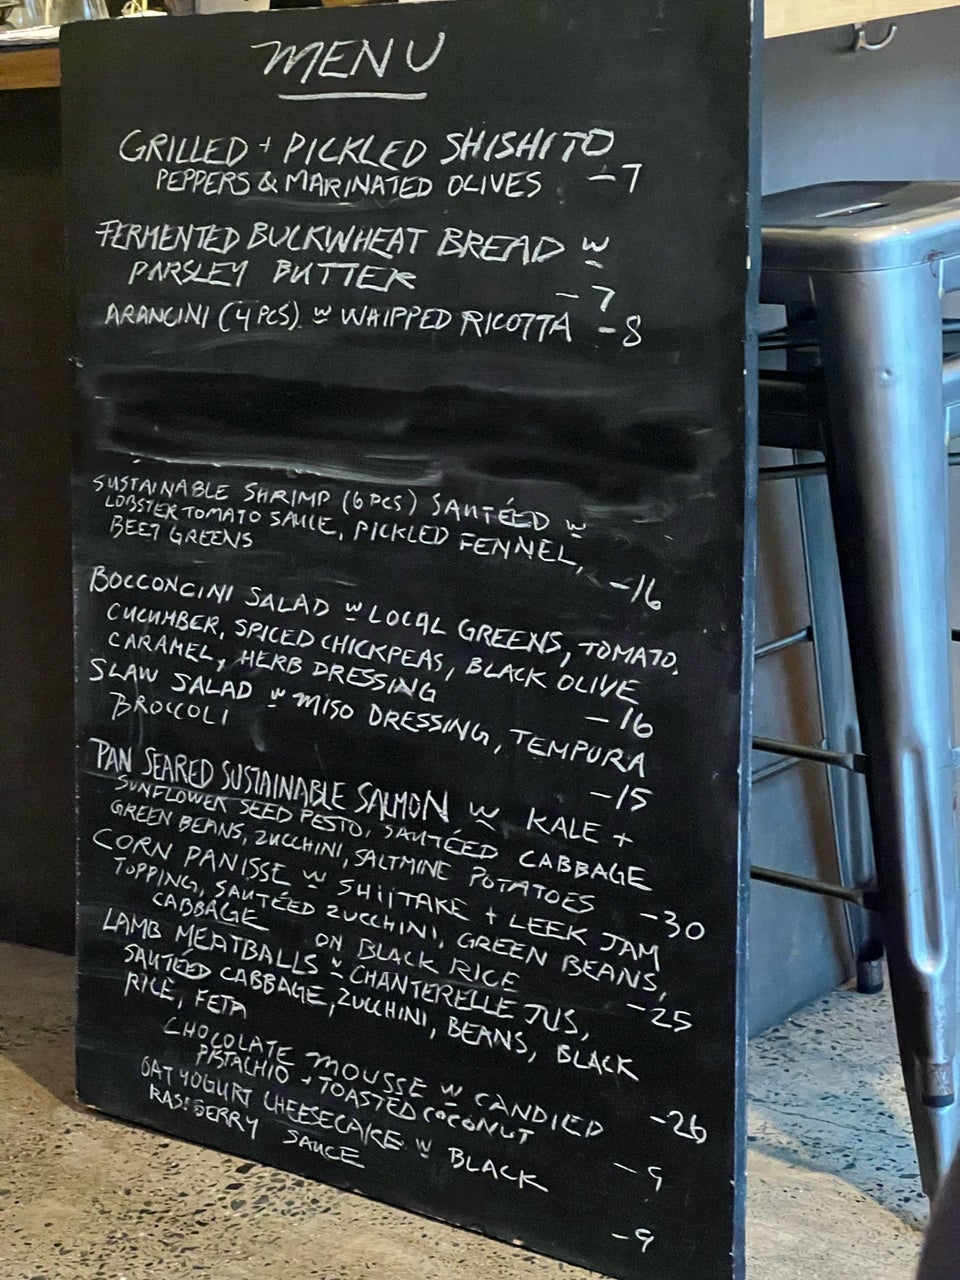 MENU
GRILLED + PICKLED SHISHITO
PEPPERS & MARINATED OLIVES -7
FERMENTED BUCKWHEAT BREAD w
PARSLEY BUTTER -7
ARANCINI (4 PCS) w WHIPPED RICOTTA -8
SUSTAINABLE SHRIMP (6 PCS) SAUTÉED w
LOBSTER TOMATO SAUCE, PICKLED FENNEL,
BEET GREENS -16
BOCCONCINI SALAD w LOCAL GREENS, TOMATO,
CUCUMBER, SPICED CHICKPEAS, BLACK OLIVE
CARAMEL, HERB DRESSING -16
SLAW SALAD w MISO DRESSING, TEMPURA
BROCCOLI -15
PAN SEARED SUSTAINABLE SALMON w KALE +
SUNFLOWER SEED PESTO, SAUTÉED CABBAGE
GREEN BEANS, ZUCCHINI, SALTMINE POTATOES -30
CORN PANISSE w SHIITAKE + LEEK JAM
TOPPING, SAUTÉED ZUCCHINI, GREEN BEANS,
CABBAGE ON BLACK RICE -25
LAMB MEATBALLS w CHANTERELLE JUS,
SAUTÉED CABBAGE, ZUCCHINI, BEANS, BLACK
RICE, FETA -26
CHOCOLATE MOUSSE w CANDIED
PISTACHIO + TOASTED COCONUT -9
OAT YOGURT CHEESECAKE w BLACK
RASPBERRY SAUCE -9